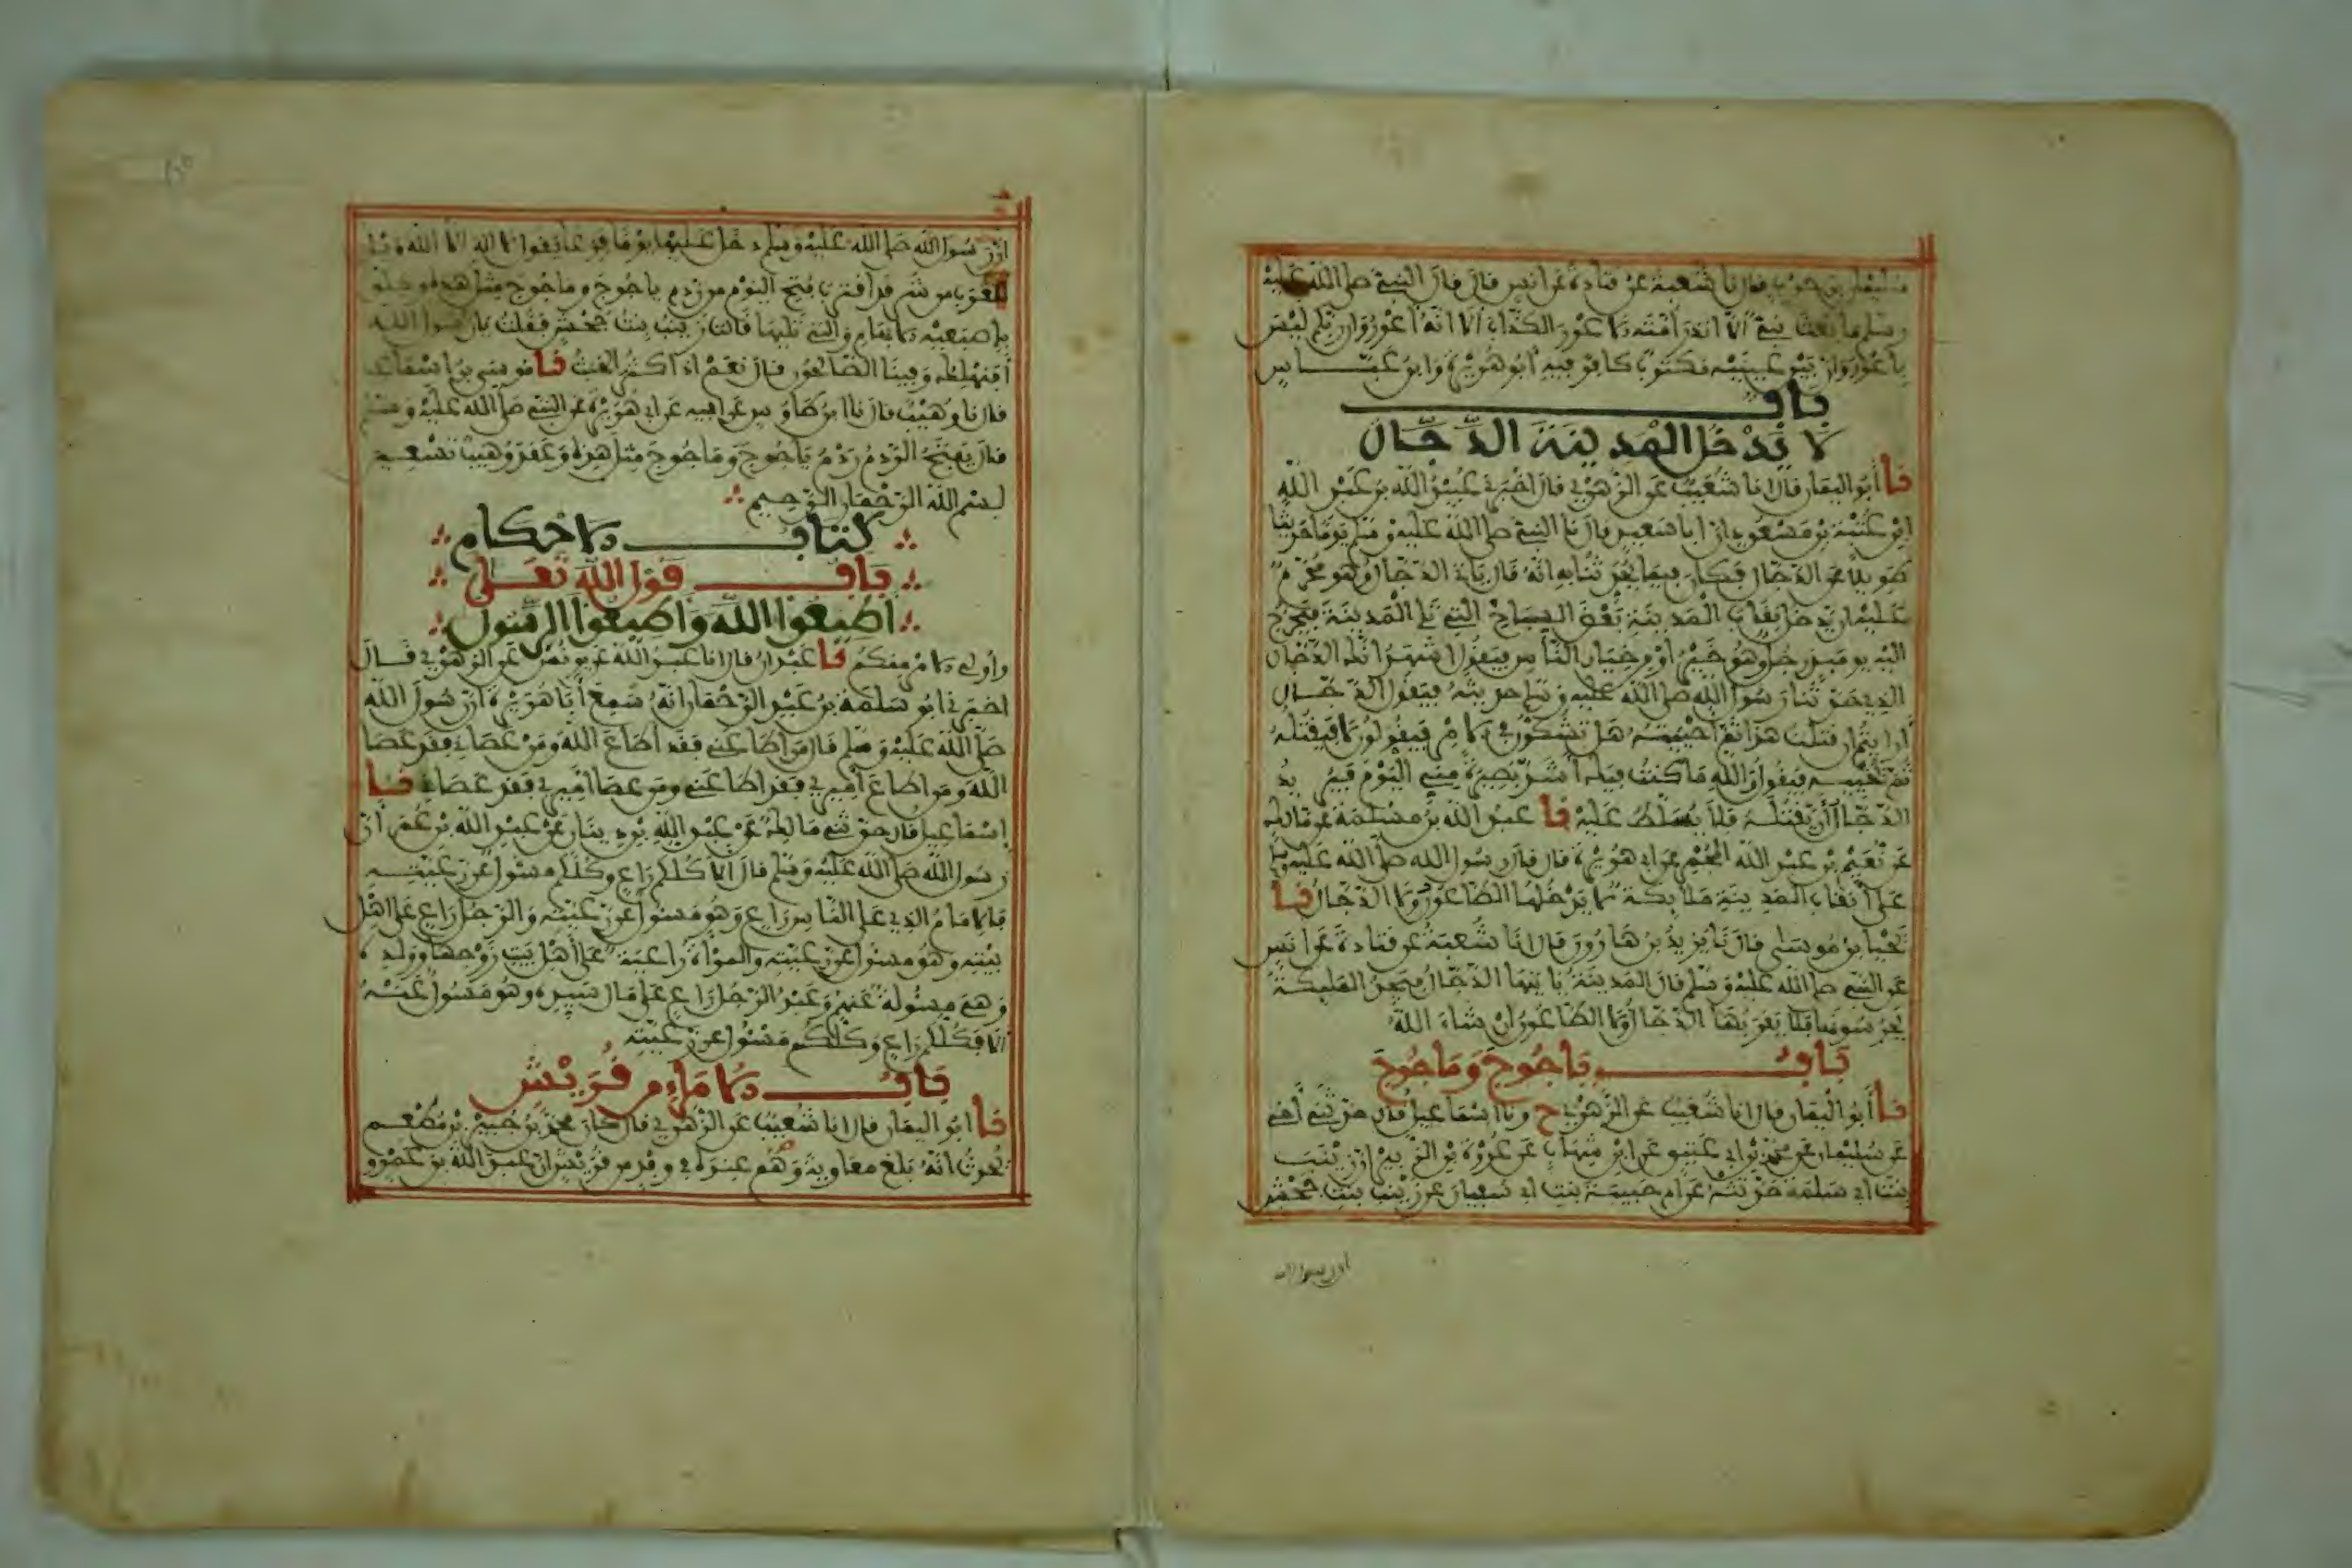 سليمان بن حرب قال نا شعبة عن قتادة عن انس قال قال النبي صلى الله عليه
وسلم ما بعث نبي الا انذر امته الاعور الكذاب الا انه اعور وان ربكم ليس
باعور وان بين عينيه مكتوبا كافر فيه ابو هريرة وابن عباس
باب
لا يدخل المدينة الدجال
نا ابو اليمان قال انا شعيب عن الزهري قال اخبرني عبيد الله بن عبد الله
ابن عتبة بن مسعود ان ابا سعيد قال نا النبي صلى الله عليه وسلم يوما حديثا
طويلا عن الدجال فكان فيما يحدثنا به انه قال ياتي الدجال وهو محرم
عليه ان يدخل نقاب المدينة بعض السباخ التي تلي المدينة فيخرج
اليه يومئذ رجل وهو خير او من خيار الناس فيقول اشهد انك الدجال
الذي حدثنا رسول الله صلى الله عليه وسلم حديثه فيقول الدجال
ارايتم ان قتلت هذا ثم احييته هل تشكون في الامر فيقولون لا فيقتله
ثم يحييه فيقول والله ما كنت فيك اشد بصيرة مني اليوم فيريد
الدجال ان يقتله فلا يسلط عليه نا عبد الله بن مسلمة عن مالك
عن نعيم بن عبد الله المجمر عن ابي هريرة قال قال رسول الله صلى الله عليه وسلم
على انقاب المدينة ملائكة لا يدخلها الطاعون ولا الدجال نا
يحيا بن موسى قال نا يزيد بن هارون قال انا شعبة عن قتادة عن انس
عن النبي صلى الله عليه وسلم قال المدينة ياتيها الدجال فيجد المليكة
يحرسونها فلا يقربها الدجال ولا الطاعون ان شاء الله
باب ياجوج وماجوج
نا ابو اليمان قال انا شعيب عن الزهري ح ونا اسماعيل قال حدثني اخي
عن سليمان عن محمد بن ابي عتيق عن ابن شهاب عن عروة بن الزبير ان زينب
بنت ابي سلمة حدثته عن ام حبيبة بنت ابي سفيان عن زينب بنت جحش
ان رسول الله
ان رسول الله صلى الله عليه وسلم دخل عليها يوما فزعا يقول لا اله الا الله ويل
للعرب من شر قد اقترب فتح اليوم من ردم ياجوج وماجوج مثل هذه وحلق
باصبعيه الابهام والتي تليها قالت زينب بنت جحش فقلت يا رسول الله
افنهلك وفينا الصالحون قال نعم اذا كثر الخبث نا موسى بن اسماعيل
قال نا وهيب قال نا ابن طاوس عن ابيه عن ابي هريرة عن النبي صلى الله عليه وسلم
قال يفتح الردم ردم ياجوج وماجوج مثل هذه وعقد وهيب تسعين
بسم الله الرحمان الرحيم
كتاب الاحكام
باب قول الله تعلى
اطيعوا الله واطيعوا الرسول
واولي الامر منكم نا عبدان قال انا عبد الله عن يونس عن الزهري قال
اخبرني ابو سلمة بن عبد الرحمان انه سمع ابا هريرة ان رسول الله
صلى الله عليه وسلم قال من اطاعني فقد اطاع الله ومن عصاني فقد عصا
الله ومن اطاع اميري فقد اطاعني ومن عصا اميري فقد عصاني نا
اسماعيل قال حدثني مالك عن عبد الله بن دينار عن عبد الله بن عمر ان
رسول الله صلى الله عليه وسلم قال الا كلكم راع وكلكم مسول عن رعيته
فالامام الذي على الناس راع وهو مسول عن رعيته والرجل راع على اهل
بيته وهو مسول عن رعيته والمراة راعية على اهل بيت زوجها وولده
وهي مسولة عنهم وعبد الرجل راع على مال سيده وهو مسول عنه
الا فكلكم راع وكلكم مسول عن رعيته
باب الامراء من قريش
نا ابو اليمان قال انا شعيب عن الزهري قال كان محمد بن جبير بن مطعم
يحدث انه بلغ معاوية وهم عنده في وفد من قريش ان عبد الله بن عمرو